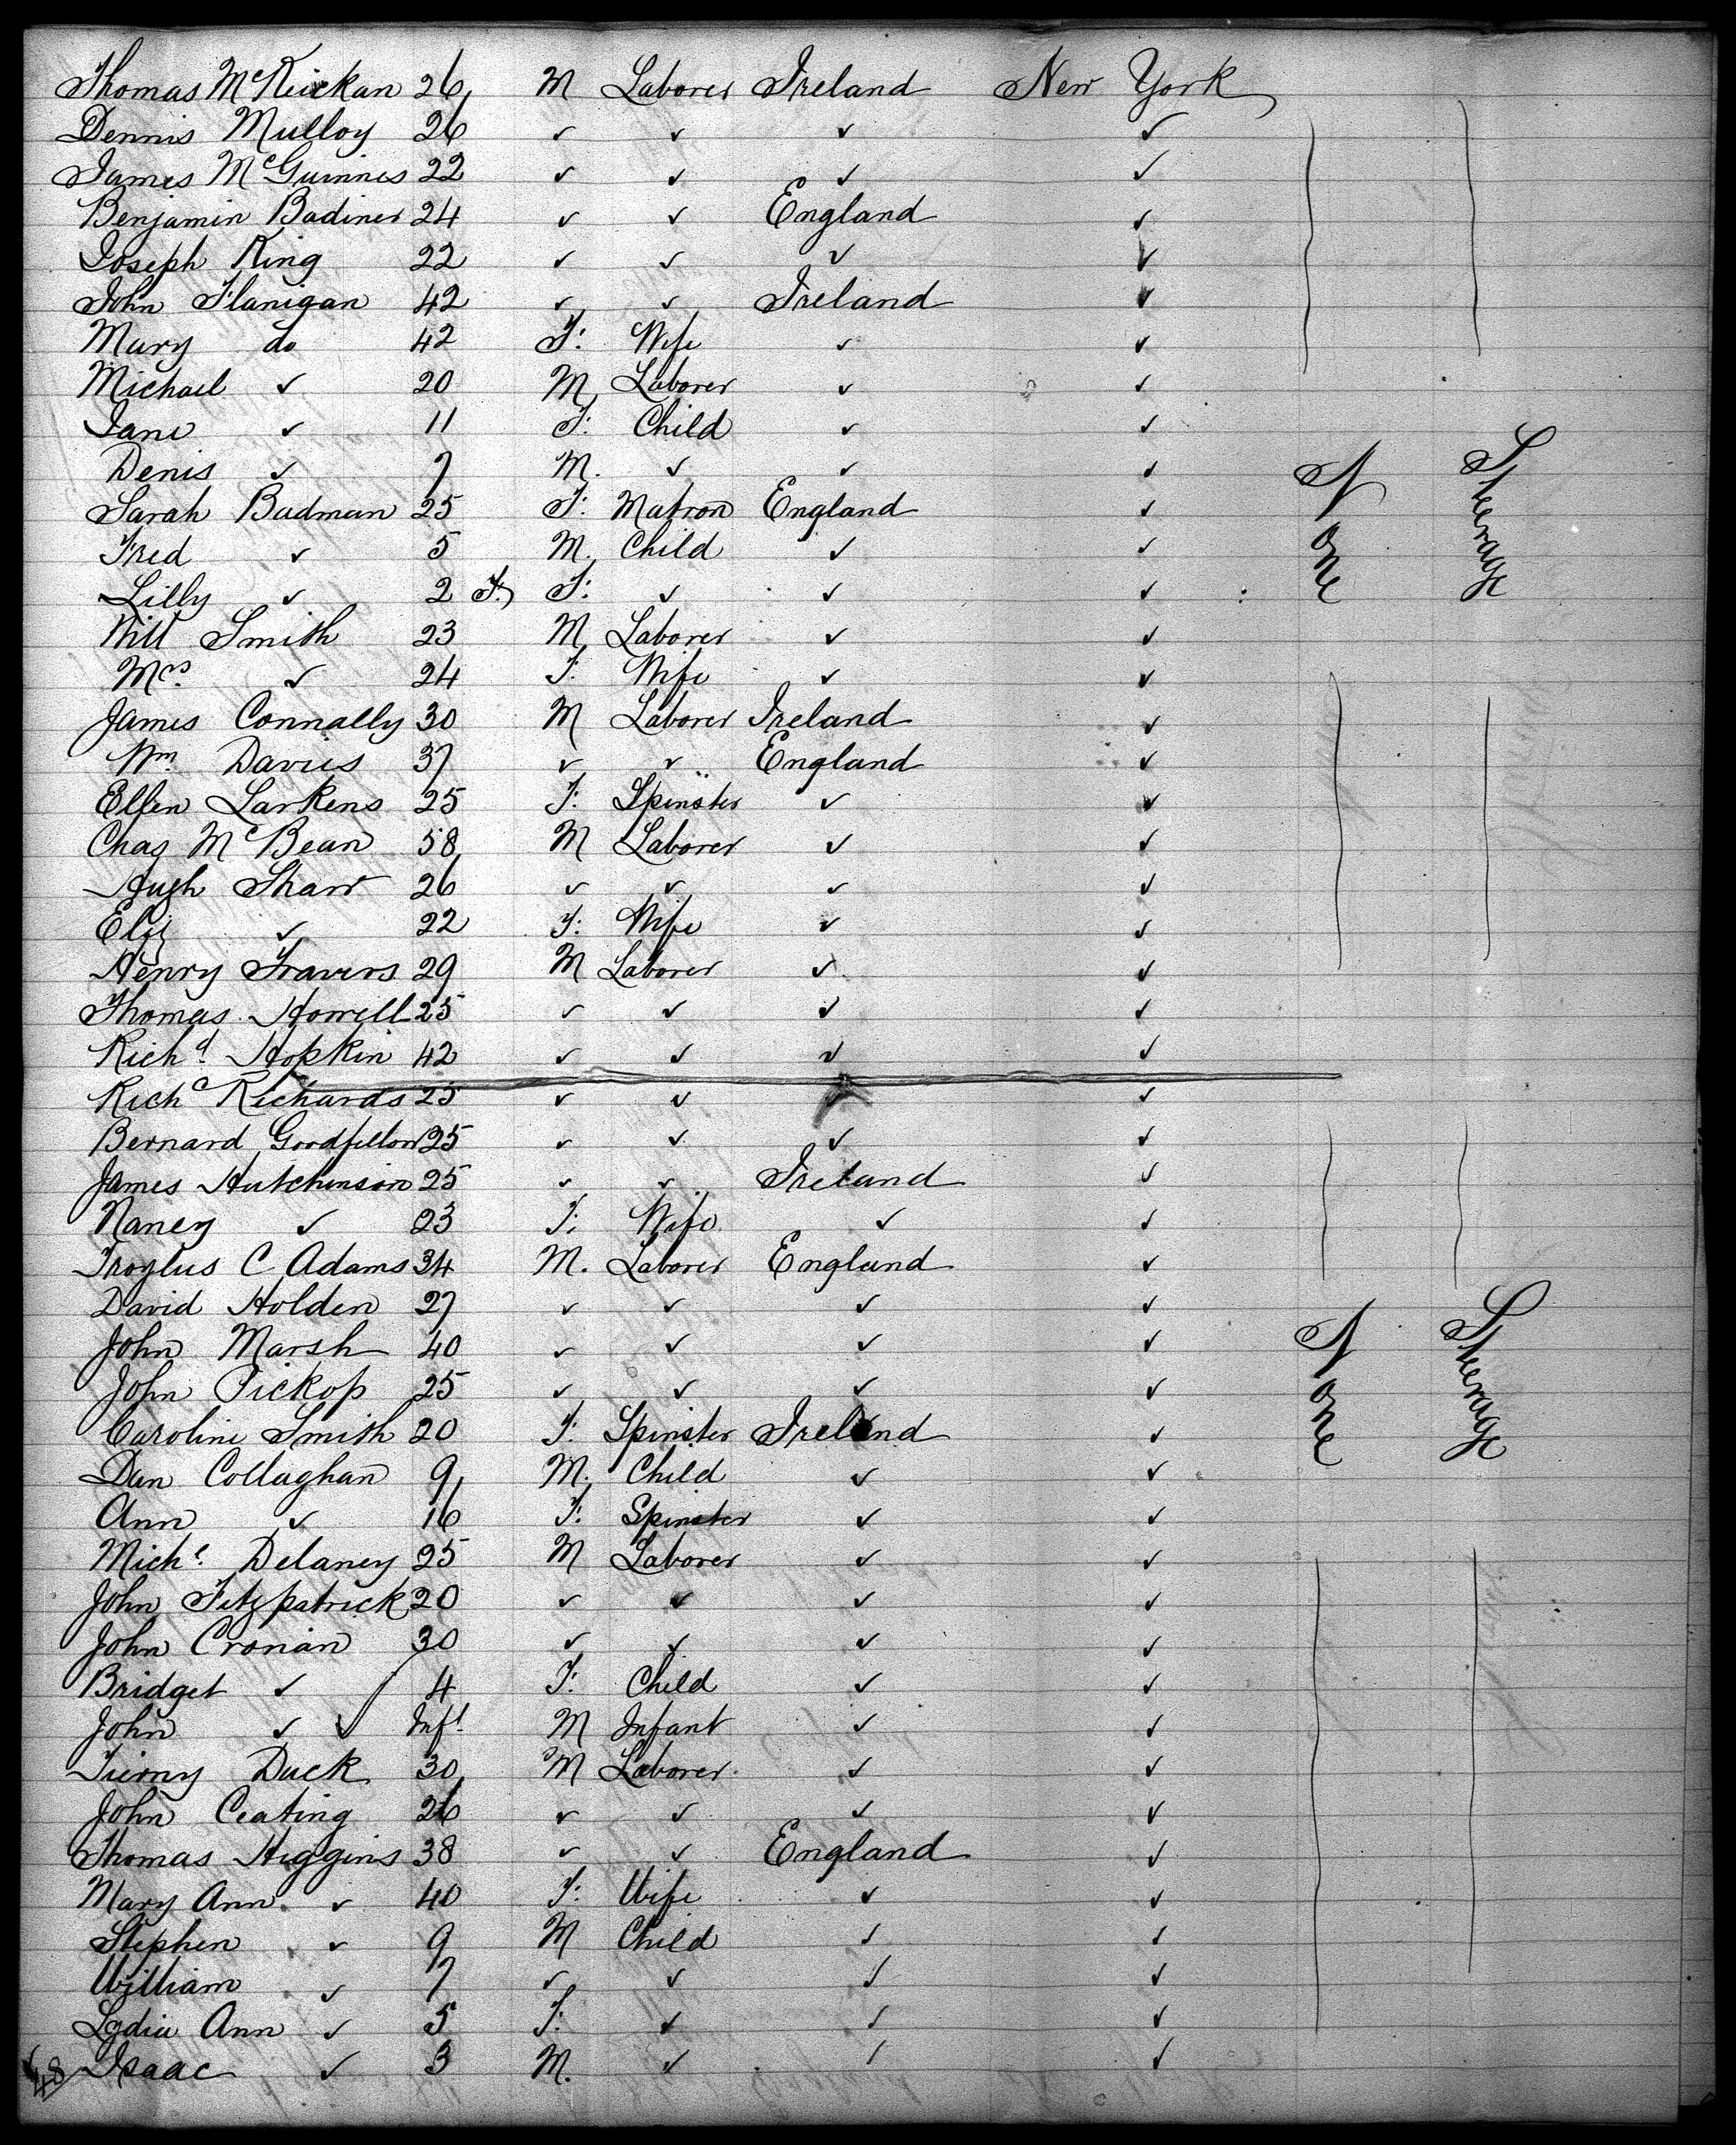 Thomas McKeickan 26 M Laborer Ireland New York
Dennis Mulloy 26 ✓ ✓ ✓ ✓
James McGuinnes 22 ✓ ✓ ✓ ✓
Benjamin Badiner 24 ✓ ✓ England ✓
Joseph King 22 ✓ ✓ ✓ ✓
John Flanigan 42 ✓ ✓ Ireland ✓
Mary do 42 F: Wife ✓ ✓
Michael ✓ 20 M Laborer ✓ ✓
Jane ✓ 11 F: Child ✓ ✓
Denis ✓ 7 M. ✓ ✓ ✓
Sarah Badman 25 F: Matron England ✓
Fred ✓ 5 M Child ✓ ✓
Lilly ✓ 2 F. F: ✓ ✓ ✓
Will Smith 23 M Laborer ✓ ✓
Mrs. ✓ 24 F. Wife ✓ ✓
James Connally 30 M Laborer Ireland ✓
Wm Davies 37 ✓ ✓ England ✓
Ellen Larkens 25 F. Spinster ✓ ✓
Chas McBean 58 M Laborer ✓ ✓
Hugh Shaw 26 ✓ ✓ ✓ ✓
Eliz ✓ 22 F: Wife ✓ ✓
Henry Travers 29 M Laborer ✓ ✓
Thomas Howell 25 ✓ ✓ ✓ ✓
Richd. Hopkin 42 ✓ ✓ ✓ ✓
None Steerage
Richd Richards 25 ✓ ✓ ✓ ✓
Bernard Goodfellow 25 ✓ ✓ ✓ ✓
James Hutchinson 25 ✓ ✓ Ireland ✓
Nancy ✓ 23 F: Wife ✓ ✓
Troylus C Adams 34 M. Laborer England ✓
David Holden 27 ✓ ✓ ✓ ✓
John Marsh 40 ✓ ✓ ✓ ✓
John Pickop 25 ✓ ✓ ✓ ✓
Caroline Smith 20 F. Spinster Ireland ✓
Dan Collaghan 9 M. Child ✓ ✓
Ann ✓ 16 F. Spinster ✓ ✓
Michl. Delaney 25 M Laborer ✓ ✓
John Fitzpatrick 20 ✓ ✓ ✓ ✓
John Cronan 30 ✓ ✓ ✓ ✓
Bridget ✓ 4 F: Child ✓ ✓
John ✓ Inft. M Infant ✓ ✓
Timmy Duck 30 M Laborer ✓ ✓
John Ceating 26 ✓ ✓ ✓ ✓
Thomas Higgins 38 ✓ ✓ England ✓
Mary Ann ✓ 40 F: Wife ✓ ✓
Stephen ✓ 9 M Child ✓ ✓
William ✓ 7 ✓ ✓ ✓ ✓
Lydia Ann ✓ 5 F: ✓ ✓ ✓
48 Isaac ✓ 3 M. ✓ ✓ ✓
None Steerage